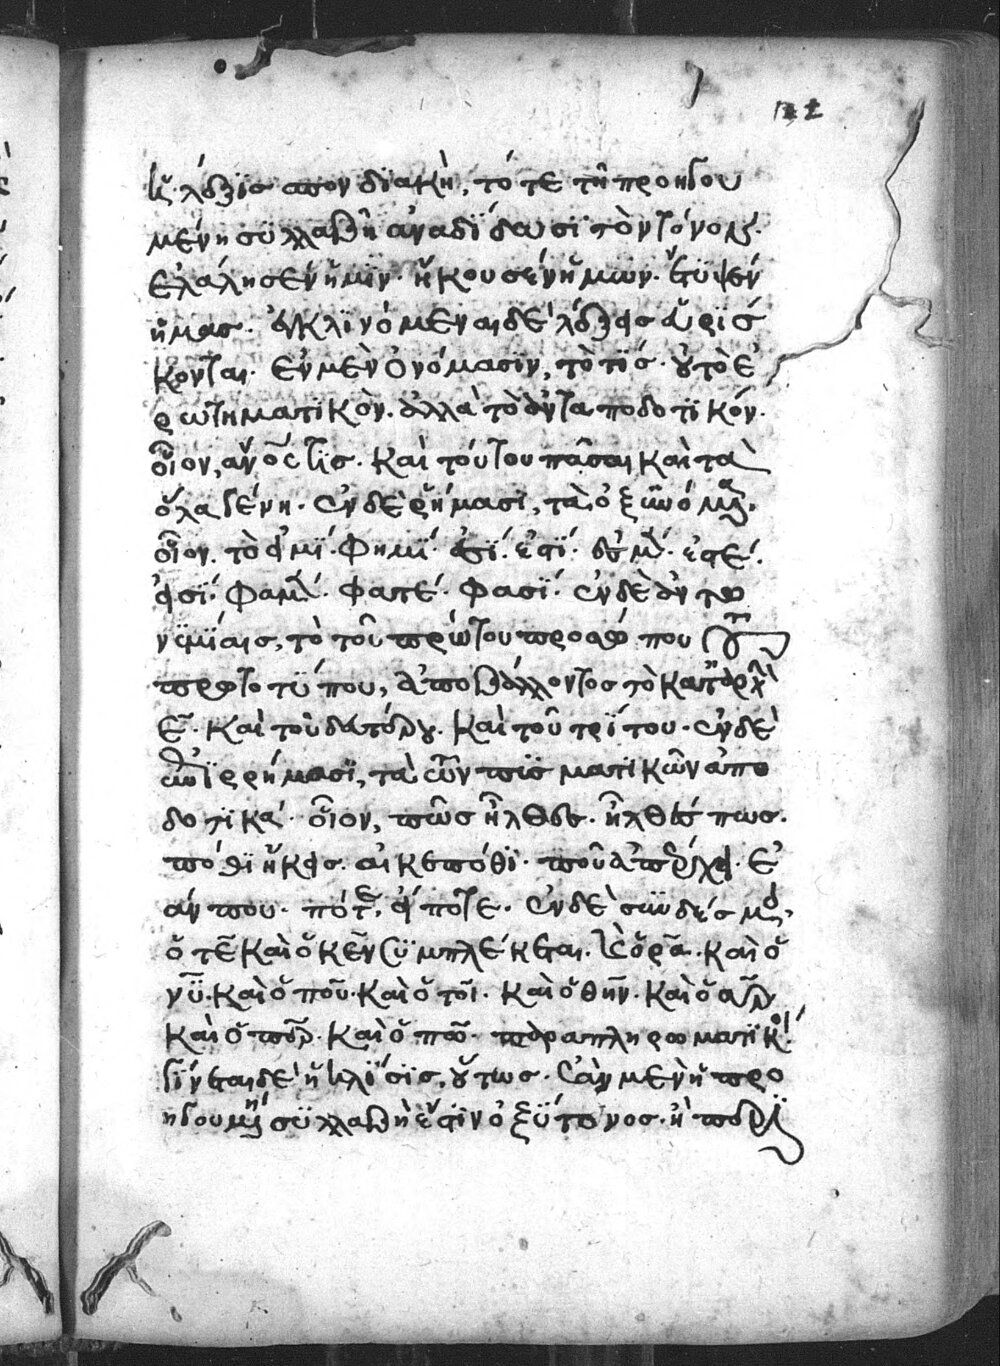 122
λέξις σπονδιακὴ, τότε τῆ προηγου
μένη συλλαβῆ ἀναδίδωσι τὸν τόνον.
ἐλάλησέν ἥμιν. ἤκουσέν ἥμων. ἔτυψέν
ἥμας. ἐγκλινόμεναι δὲ λέξεις εὑρίσ
κονται. ἐν μὲν ὀνόμασιν, τὸ τίς. οὐ τὸ ἐ
ρωτηματικὸν. ἀλλὰ τὸ ἀνταποδοτικόν.
οἷον, ἄνος τίς. καὶ τούτου πᾶσαι καὶ τὰ
ὅλα γένη. ἐν δὲ ῥήμασι, τὰ
οἷον. τὸ εἰμί. φημί. ἐστί.
εἰσί. φαμέν. φατέ. φασί. ἐν δὲ ἀντω
νυμίαις, τὸ τοῦ πρώτου προσώπου
πρωτοτύπου, ἀποβάλλοντος τὸ κατ' ἀρχὰς
ε. καὶ τοῦ δευτέρου. καὶ τοῦ τρίτου. ἐν δὲ
ἐπιρρήμασι, τὰ τῶν πυσματικῶν ἀπο
δοτικά. οἷον, πῶς ἦλθες. ἦλθές πως.
πόθι ἥκεις. αἴ κε πόθι. ποῦ ἀπέρχη. ἐ
άν που. πότε. εἴ ποτε. ἐν δὲ συνδέσμοις.
ὅ τε καὶ ὁ κεν συμπλέκεται. καὶ ὁ ρα. καὶ ὁ
νυ. καὶ ὁ που. καὶ ὁ τοι. καὶ ὁ θην. καὶ ὁ αρ.
καὶ ὁ περ. καὶ ὁ πω. παραπληρωματικοί.
γίνεται δὲ ἡ κλίσις, οὕτως. ἐὰν μὲν ἡ προ
ηγουμένη συλλαβὴ ἐστὶν ὀξύτονος. ἢ περι